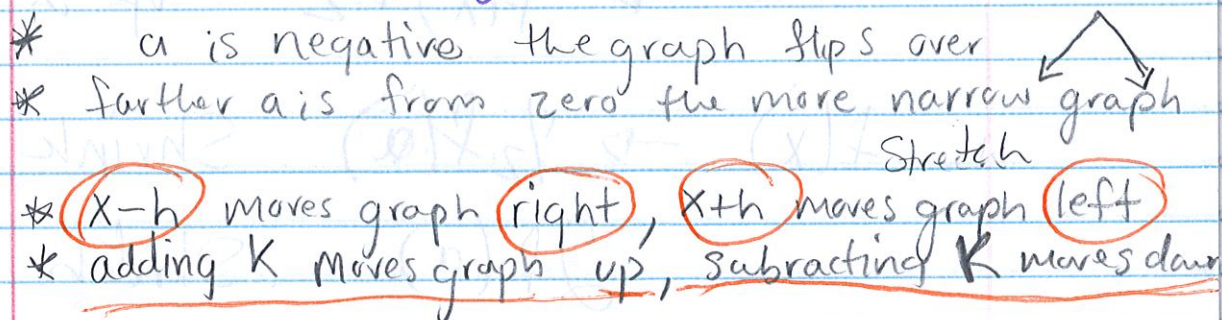 * a is negative the graph flips over
* farther a is from zero the more narrow graph
Stretch
* x-h moves graph right, x+h moves graph left
* adding K moves graph up, subracting K moves down